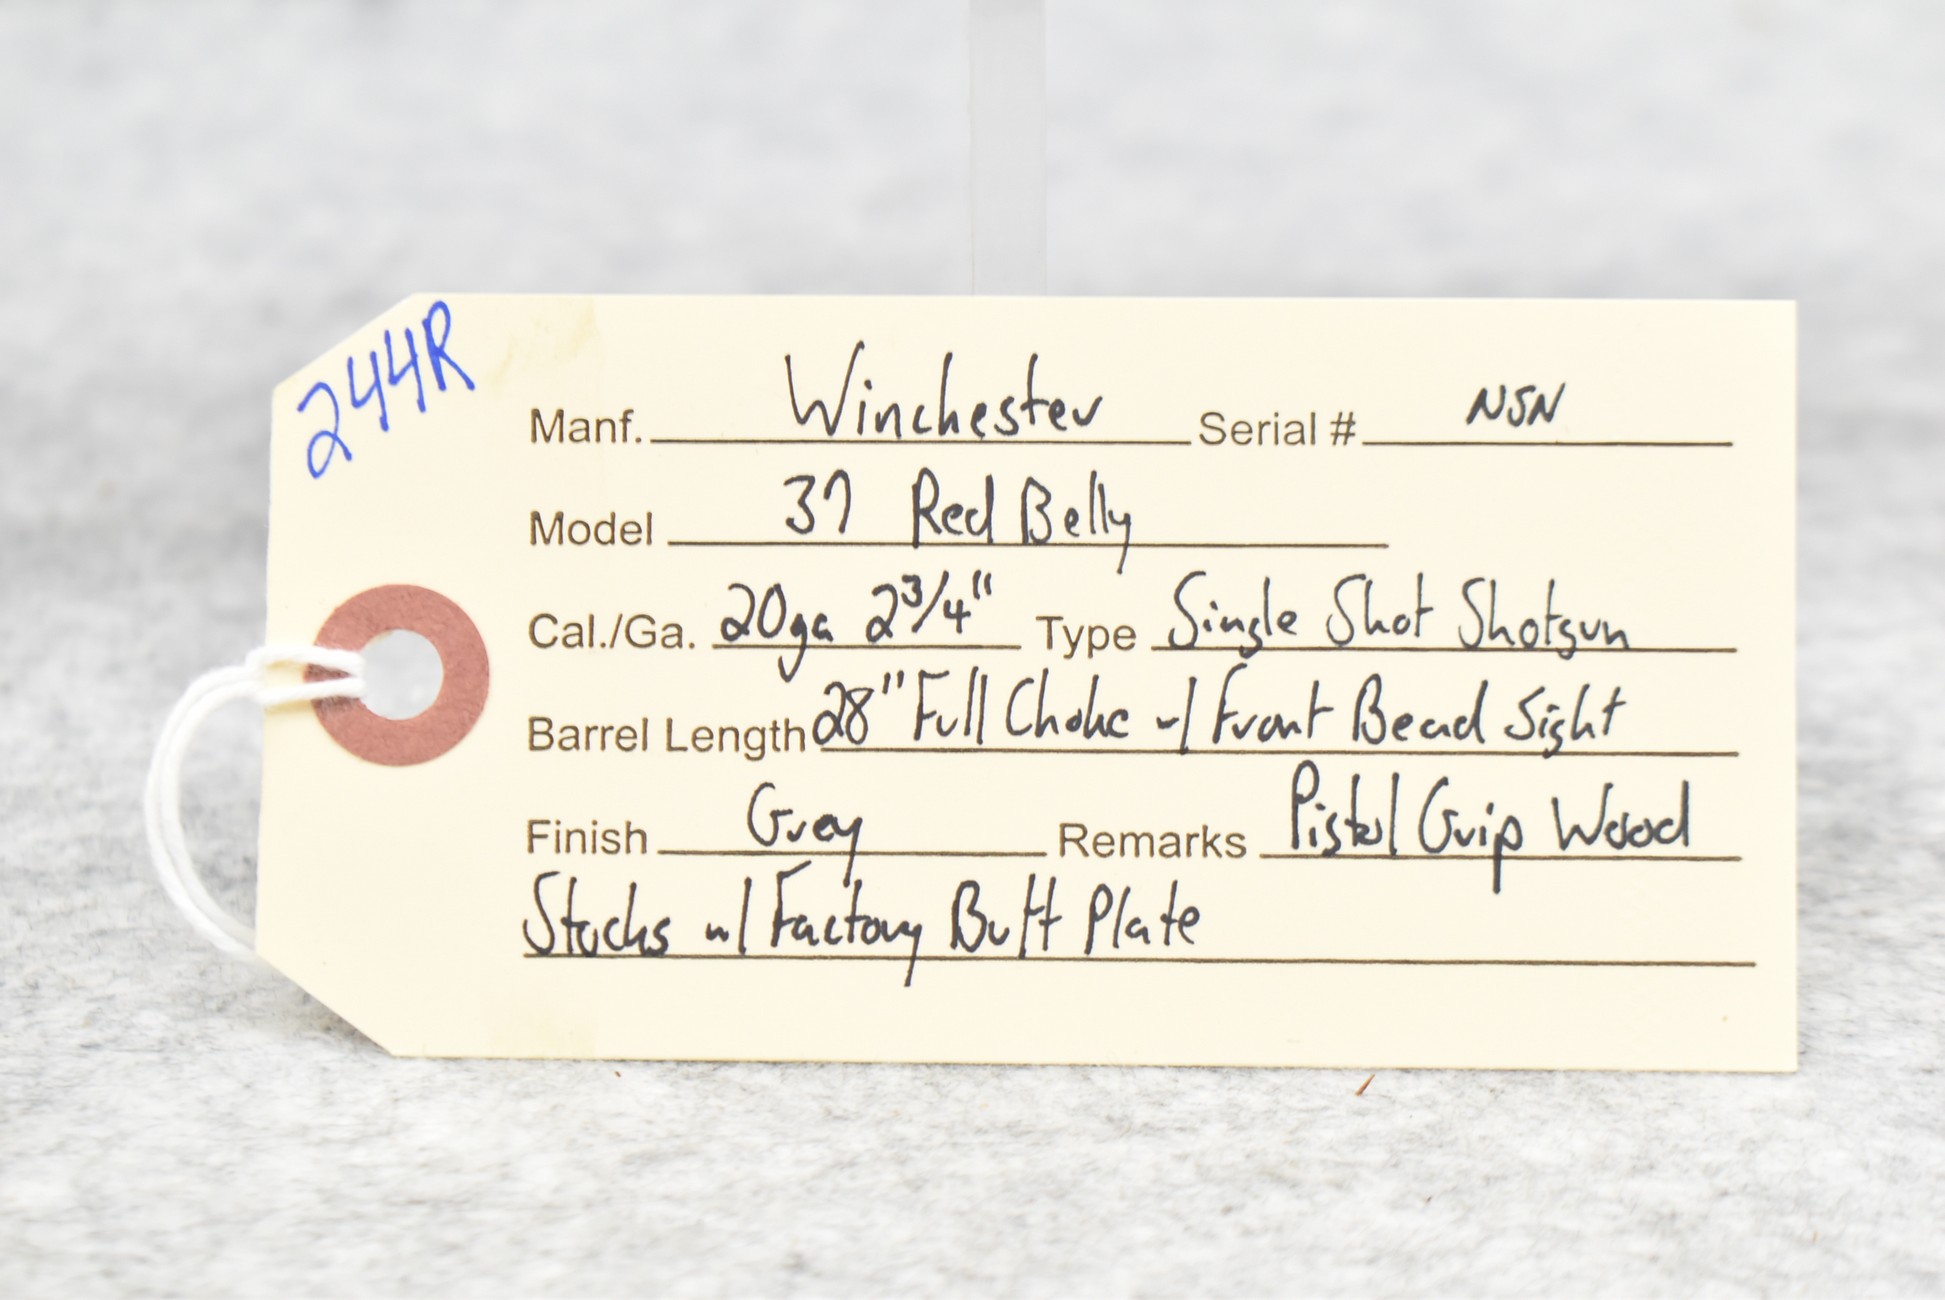 244R
Manf. Winchester Serial # NSN
Model 37 Red Belly
Cal./Ga. 20ga 2 3/4" Type Single Shot Shotgun
Barrel Length 28" Full Choke w/ Front Bead Sight
Finish Grey Remarks Pistol Grip Wood
Stocks w/ Factory Butt Plate